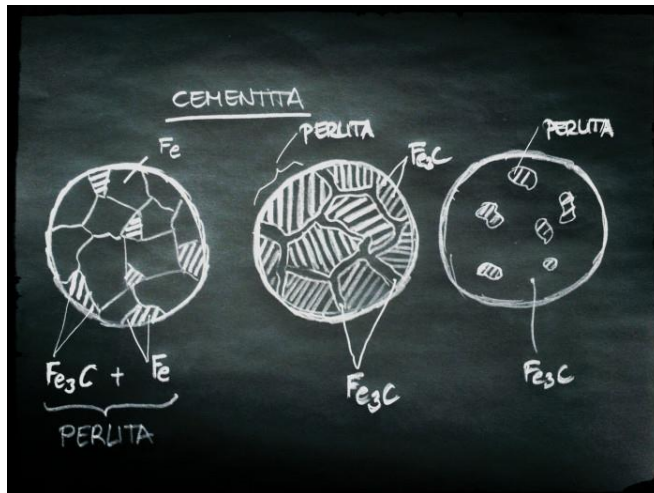 CEMENTITA
Fe
PERLITA
Fe₃C
PERLITA
Fe₃C + Fe
PERLITA
Fe₃C
Fe₃C